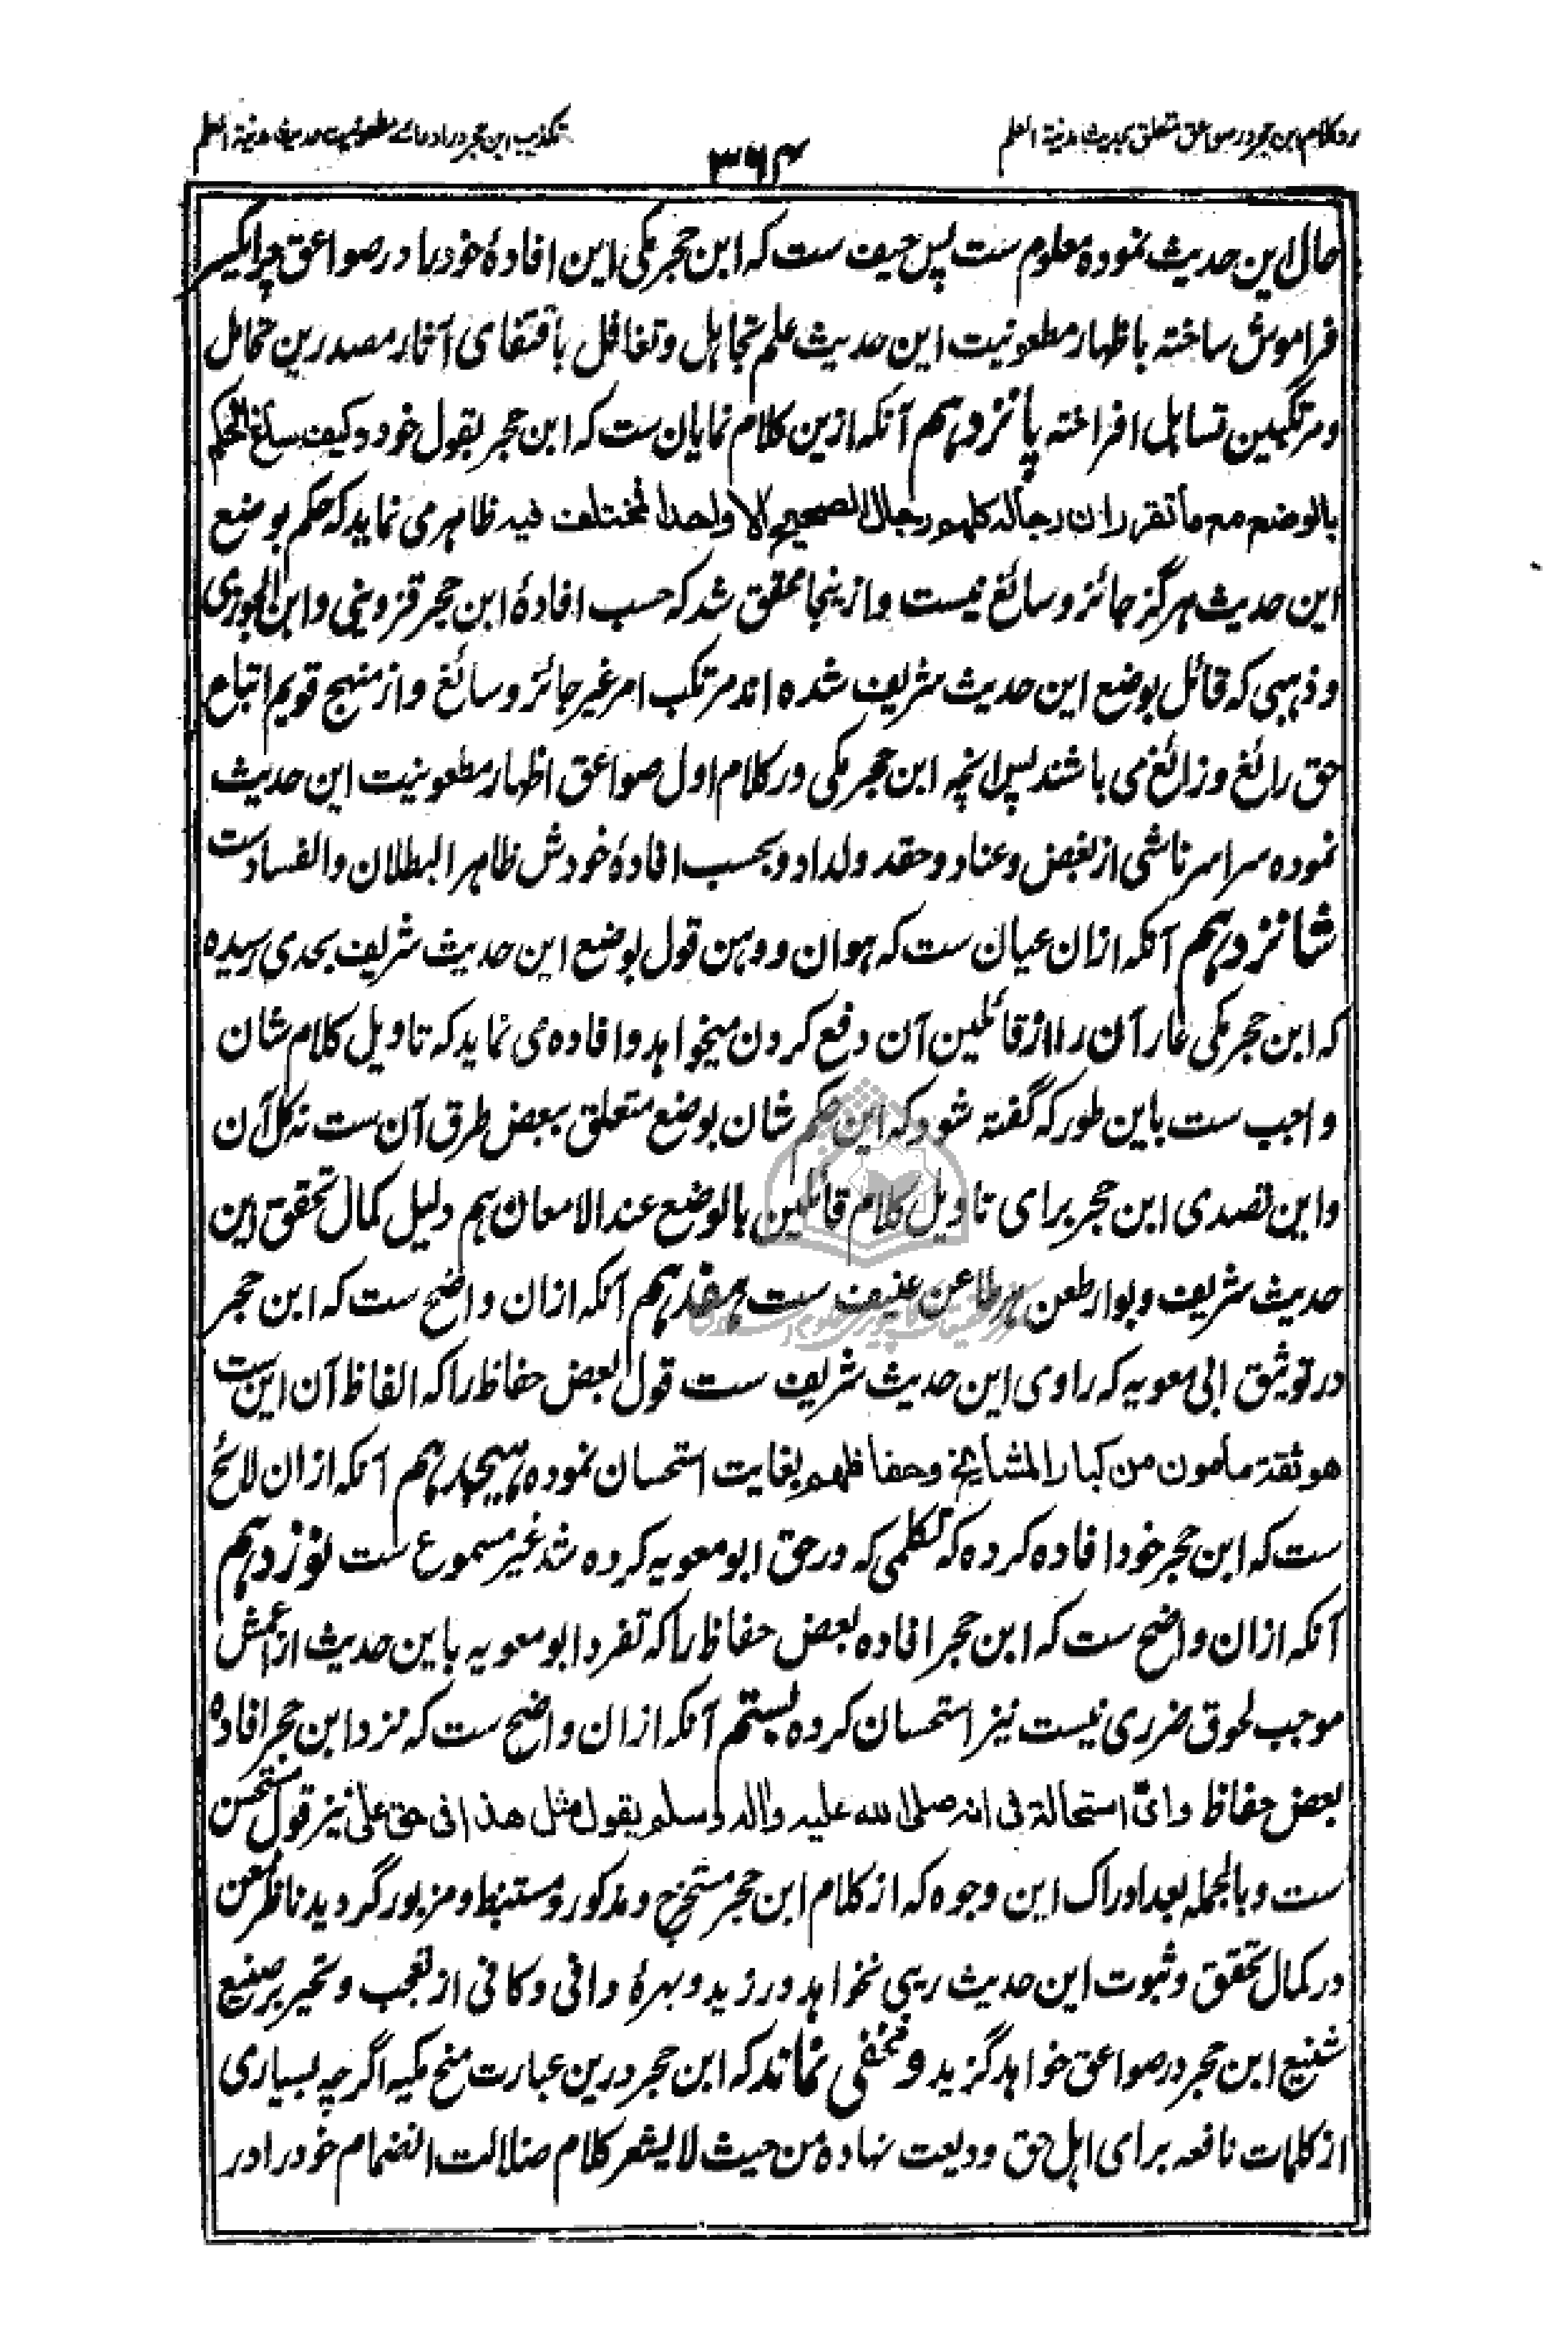 رد کلام ابن حجر در صواعق متعلق بحدیث مدینة العلم
۳۶۴
تکذیب ابن حجر در ادعائے مطعونیت حدیث مدینة العلم
حال این حدیث نموده معلوم ست پس حیف ست که ابن حجر مکی این افادهٔ خود را در صواعق چرا یکسر
فراموش ساخته باظهار مطعونیت این حدیث علم تجاهل و تغافل باقتفای آثار مصدرین تحامل
و مرتکبین تساهل افراخته پانزدهم آنکه ازین کلام نمایان ست که ابن حجر بقول خود و کیف ساغ الحکم
بالوضع مع ما تقرر ان رجاله کلهم رجال الصحیح الا واحدا فمختلف فیه ظاهر می نماید که حکم بوضع
این حدیث هرگز جائز و سائغ نیست و ازینجا محقق شد که حسب افادهٔ ابن حجر قزوینی و ابن الجوزی
و ذهبی که قائل بوضع این حدیث شریف شده اند مرتکب امر غیر جائز و سائغ و از منهج قویم اتباع
حق رائغ و زائغ می باشند پس انچه ابن حجر مکی در کلام اول صواعق اظهار مطعونیت این حدیث
نموده سراسر ناشی از بغض و عناد و حقد و لداد و بحسب افادهٔ خودش ظاهر البطلان و الفسادست
شانزدهم آنکه ازان عیان ست که هوان و وهن قول بوضع این حدیث شریف بحدی رسیده
که ابن حجر مکی عار آن را از قائلین آن دفع کردن میخواهد و افاده می نماید که تاویل کلام شان
واجب ست باین طور که گفته شود که این حکم شان بوضع متعلق ببعض طرق آن ست نه کل آن
و این تصدی ابن حجر برای تاویل کلام قائلین بالوضع عند الامعان هم دلیل کمال تحقق این
حدیث شریف و بوار طعن هر طاعن عنیف ست هفدهم آنکه ازان واضح ست که ابن حجر
در توثیق ابی معویه که راوی این حدیث شریف ست قول بعض حفاظ را که الفاظ آن این ست
هو ثقة مأمون من کبار المشایخ و حفاظهم بغایت استحسان نموده هیجدهم آنکه ازان لائح
ست که ابن حجر خود افاده کرده که تکلمی که در حق ابو معویه کرده شد غیر مسموع ست نوزدهم
آنکه ازان واضح ست که ابن حجر افاده بعض حفاظ را که تفرد ابو معویه باین حدیث از اعمش
موجب لحوق ضرری نیست نیز استحسان کرده بستم آنکه ازان واضح ست که نزد ابن حجر افاده
بعض حفاظ و ایّ استحالة فی انه صلی الله علیه و اله و سلم یقول مثل هذا فی حق علی نیز قول مستحسن
ست و بالجمله بعد ادراک این وجوه که از کلام ابن حجر مستخرج و مذکور و مستنبط و مزبور گردید ناظر ممعن
در کمال تحقق و ثبوت این حدیث ریبی نخواهد ورزید و بهرهٔ وافی و کافی از تعجب و تحیر بر صنیع
شنیع ابن حجر در صواعق خواهد گزید و مخفی نماند که ابن حجر درین عبارت منح مکیه اگرچه بسیاری
از کلمات نافعه برای اهل حق ودیعت نهاده من حیث لا یشعر کلام ضلالت انضمام خود را در